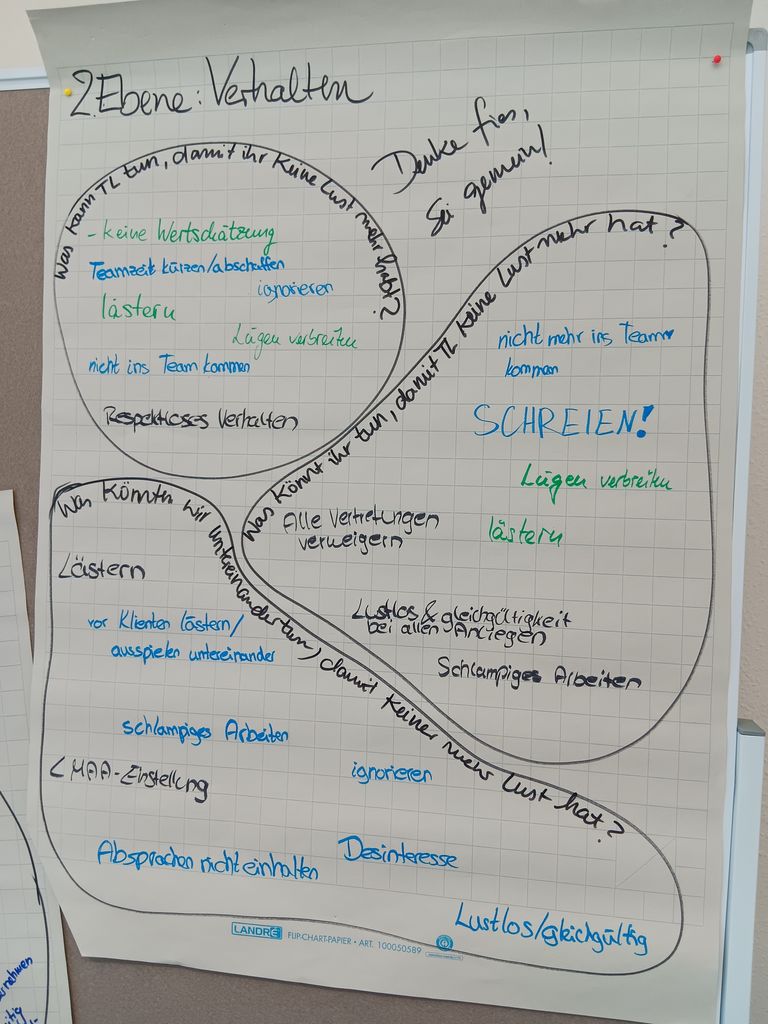 2. Ebene: Verhalten
Denke fies,
Sei gemein!
Was kann TL tun, damit ihr keine Lust mehr habt?
- keine Wertschätzung
Teamzeit kürzen/abschaffen
ignorieren
lästern
Lügen verbreiten
nicht ins Team kommen
Respektloses Verhalten
Was könnt ihr tun, damit TL keine Lust mehr hat?
nicht mehr ins Team
kommen
SCHREIEN!
Lügen verbreiten
Alle Vertretungen
verweigern
lästern
Lustlos & gleichgültigkeit
bei allen Anliegen
Schlampiges Arbeiten
Was könnten wir untereinander tun, damit keiner mehr Lust hat?
Lästern
vor Klienten lästern/
ausspielen untereinander
schlampiges Arbeiten
LMAA-Einstellung
ignorieren
Absprachen nicht einhalten
Desinteresse
Lustlos/gleichgültig
LANDRÉ FLIP-CHART-PAPIER • ART. 100050589